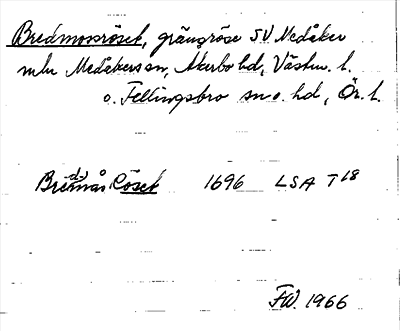 Bredmossröset, gränsröse SV Medåker
mln Medåkers sn, Åkerbo hd, Västm. l.
o. Fellingsbro sn o. hd, Ör. l.
Bredmås Röset 1696 LSA T18
FW. 1966